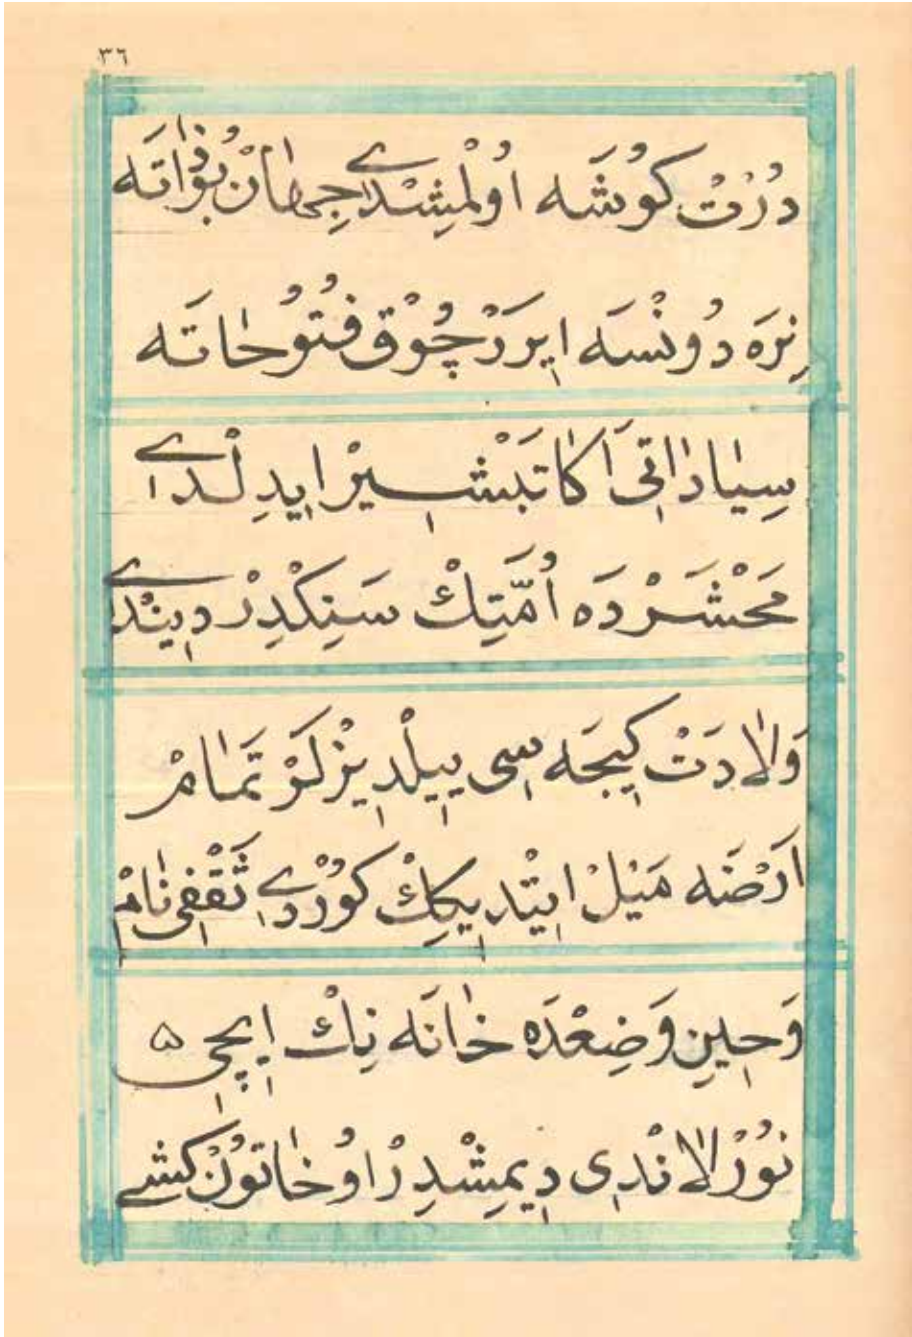 ٣٦
دُرْتْ كُوشَه اُولْمِشْدِى جِهَانْ بُو ذَاتَه
نِرَه دُونْسَه ايرَرْ چُوْق فُتُوحَاتَه
سِيَادَاتِى اَكَا تَبْشِيرْ ايدِلْدِى
مَحْشَرْدَه اُمَّتِكْ سَنِكْدِرْ دِينْدِى
وَلَادَتْ كِيجَه سِى يِيلْدِيزْلَرْ تَمَامْ
اَرْضَه مَيْلْ اِيتْدِيكِكْ كُورْدِى ثَقَفِى نَامْ
وَحِينِ وَضِعْدَه خَانَه نِكْ اِيچِى ۵
نُورْلَانْدِى دِيمِشْدِرْ اُو خَاتُونْ كِشِى